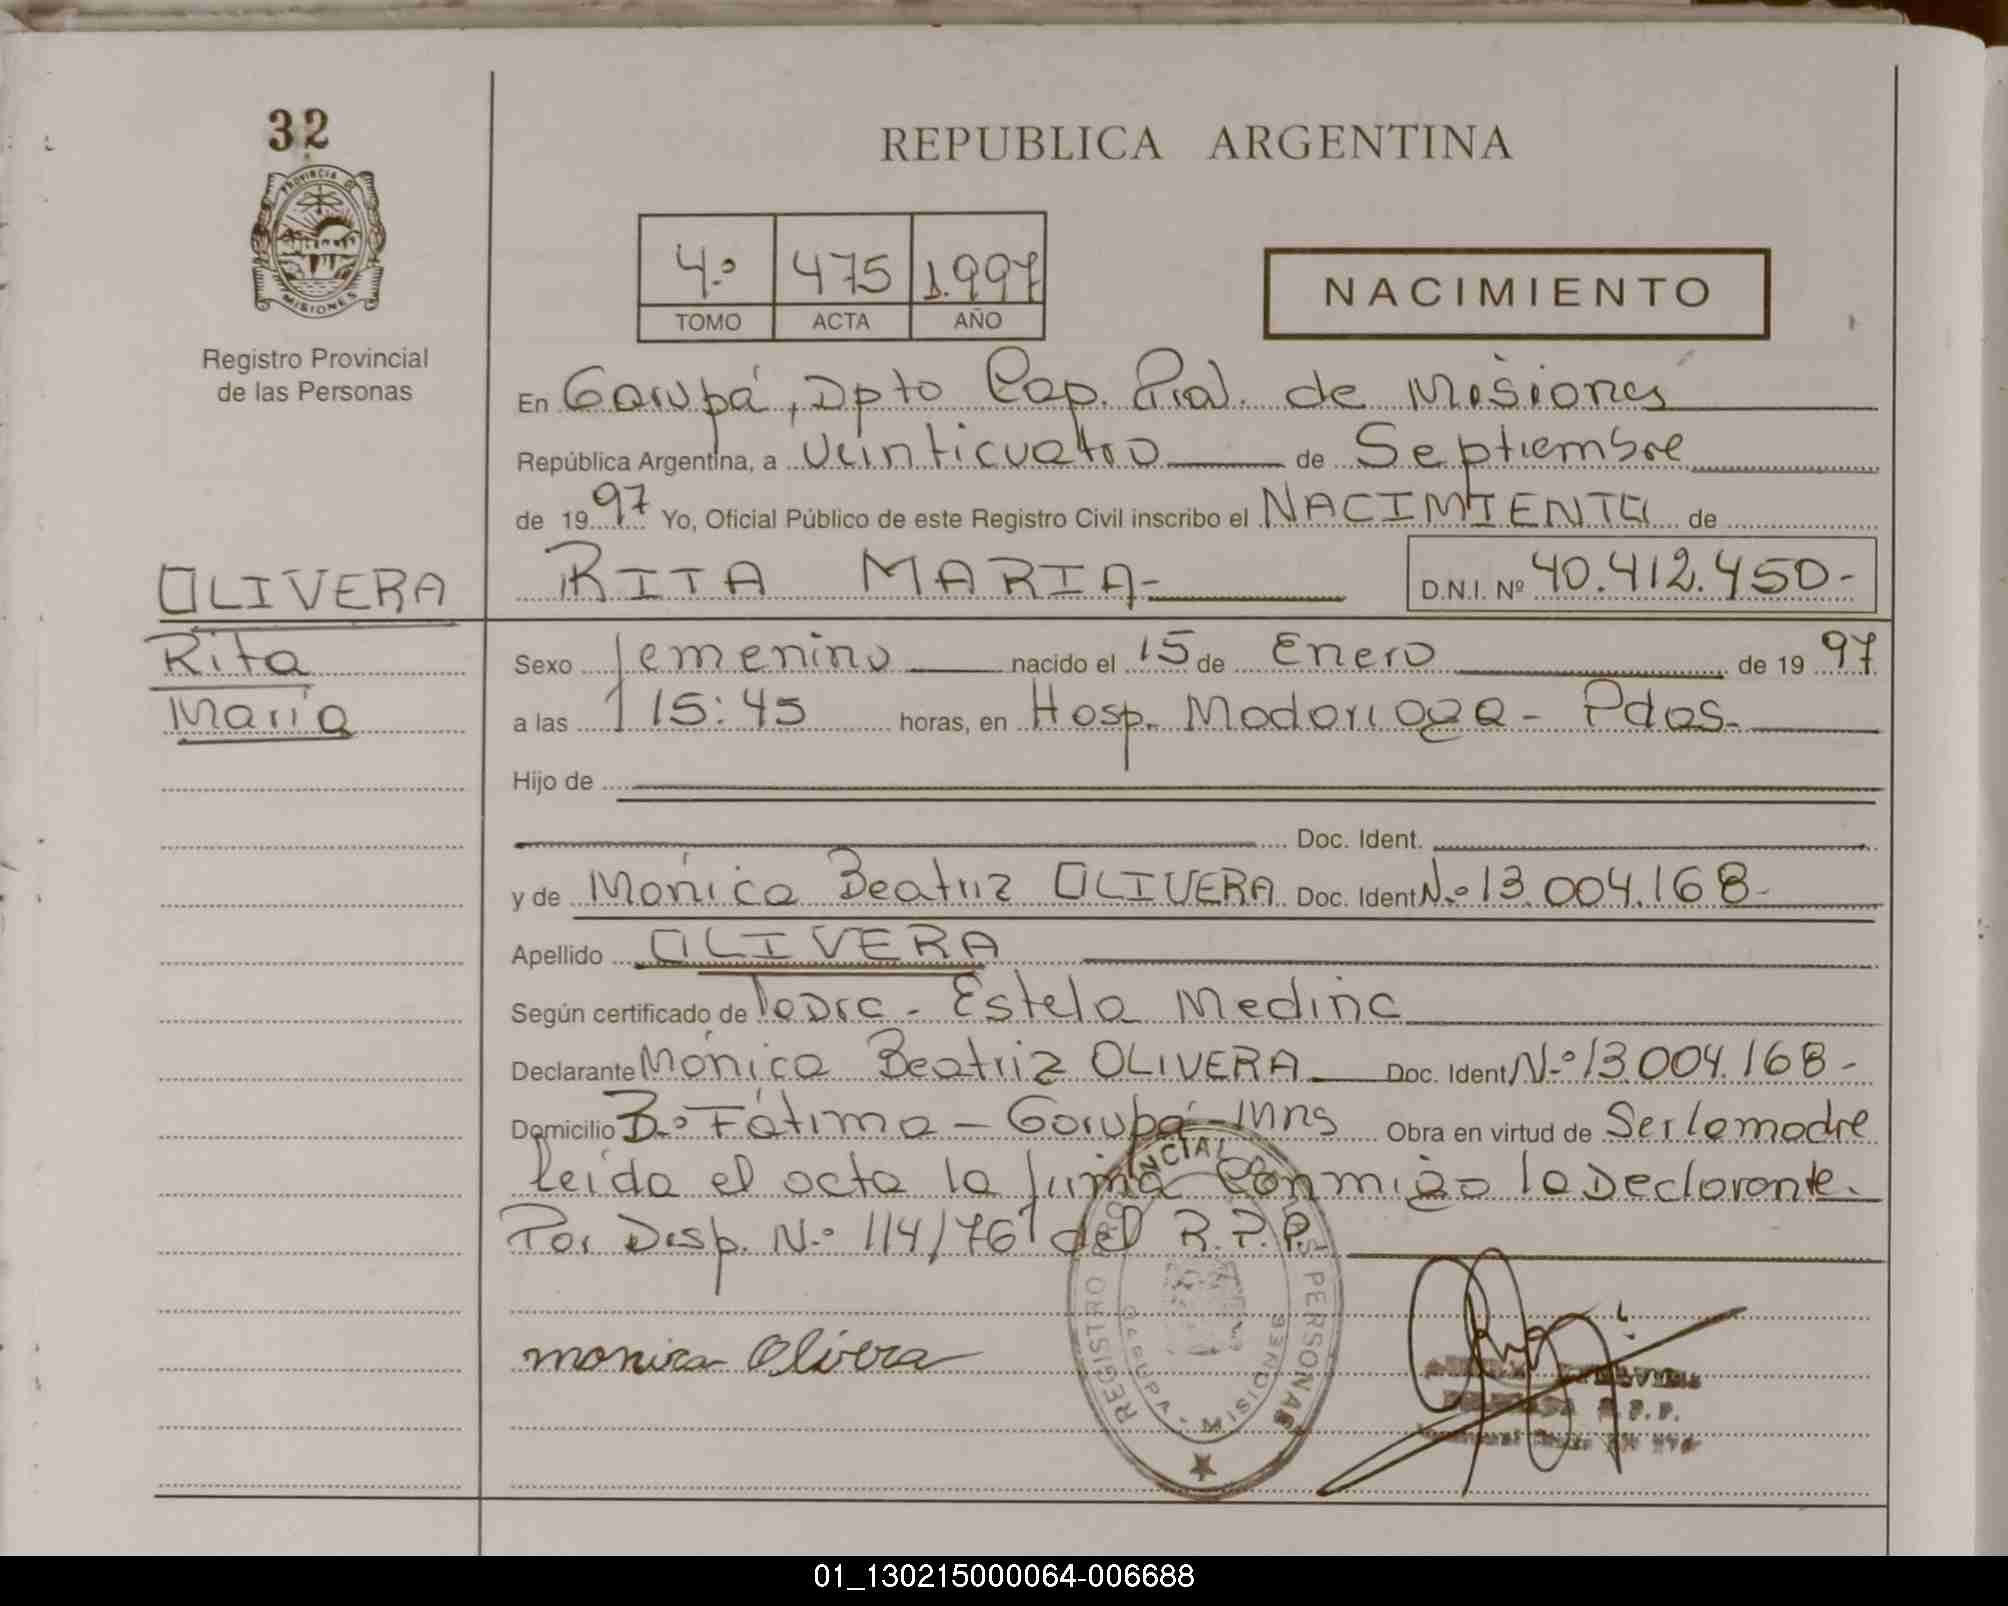 32
PROVINCIA DE
MISIONES
Registro Provincial
de las Personas
REPUBLICA ARGENTINA
4º 475 1.997
TOMO ACTA AÑO
NACIMIENTO
En Garupá, Dpto Cap. Pcial. de Misiones
República Argentina, a Veinticuatro de Septiembre
de 1997 Yo, Oficial Público de este Registro Civil inscribo el NACIMIENTO de
OLIVERA
Rita
María
RITA MARIA- D.N.I. Nº 40.412.450-
Sexo femenino nacido el 15 de Enero de 1997
a las 15:45 horas, en Hosp. Madariaga - Pdas-
Hijo de
Doc. Ident.
y de Mónica Beatriz OLIVERA Doc. Ident Nº 13.004.168-
Apellido OLIVERA
Según certificado de Estela Medina
Declarante Mónica Beatriz OLIVERA Doc. Ident Nº 13.004.168-
Domicilio Bº Fátima - Garupá - Mnes Obra en virtud de Ser la madre
Leída el acta la firma conmigo la Declarante.
Por Disp. Nº 114/76 del R.P.P.
monica Olivera
REGISTRO PROVINCIAL DE LAS PERSONAS
GARUPA - MISIONES
R.P.P.
01_130215000064-006688